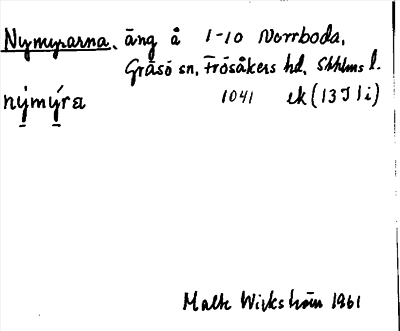 Nymyrarna, äng å 1-10 Norrboda,
Gräsö sn, Frösåkers hd, Sthlms l.
nýmýra 1041 ek (13J1i)
Malte Wickström 1961